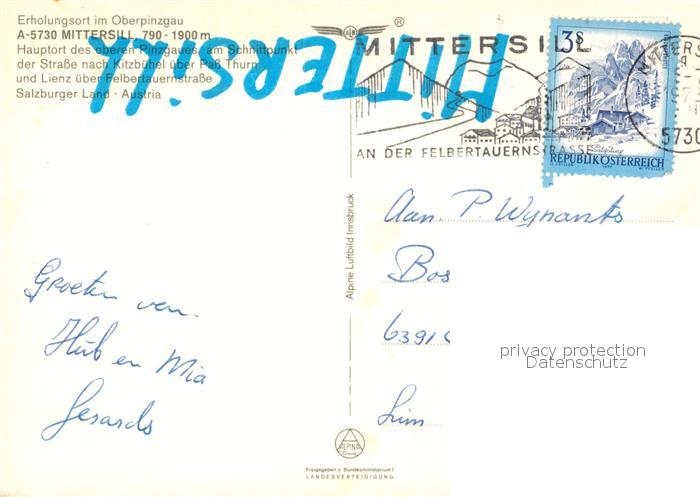 Erholungsort im Oberpinzgau
A-5730 MITTERSILL, 790 - 1900 m
Hauptort des oberen Pinzgaues, am Schnittpunkt
der Straße nach Kitzbühel über Paß Thurn
und Lienz über Felbertauernstraße
Salzburger Land · Austria
MITTERSILL
®
MITTERSILL
AN DER FELBERTAUERNSTRASSE
5730
3S
REPUBLIK ÖSTERREICH
Alpine Luftbild Innsbruck
Aan. P. Wynants
Bos
6391
privacy protection
Datenschutz
Groeten van.
Hub en Mia
Gerards
ALPINA
Druck
Freigegeben v. Bundesministerium f.
LANDESVERTEIDIGUNG